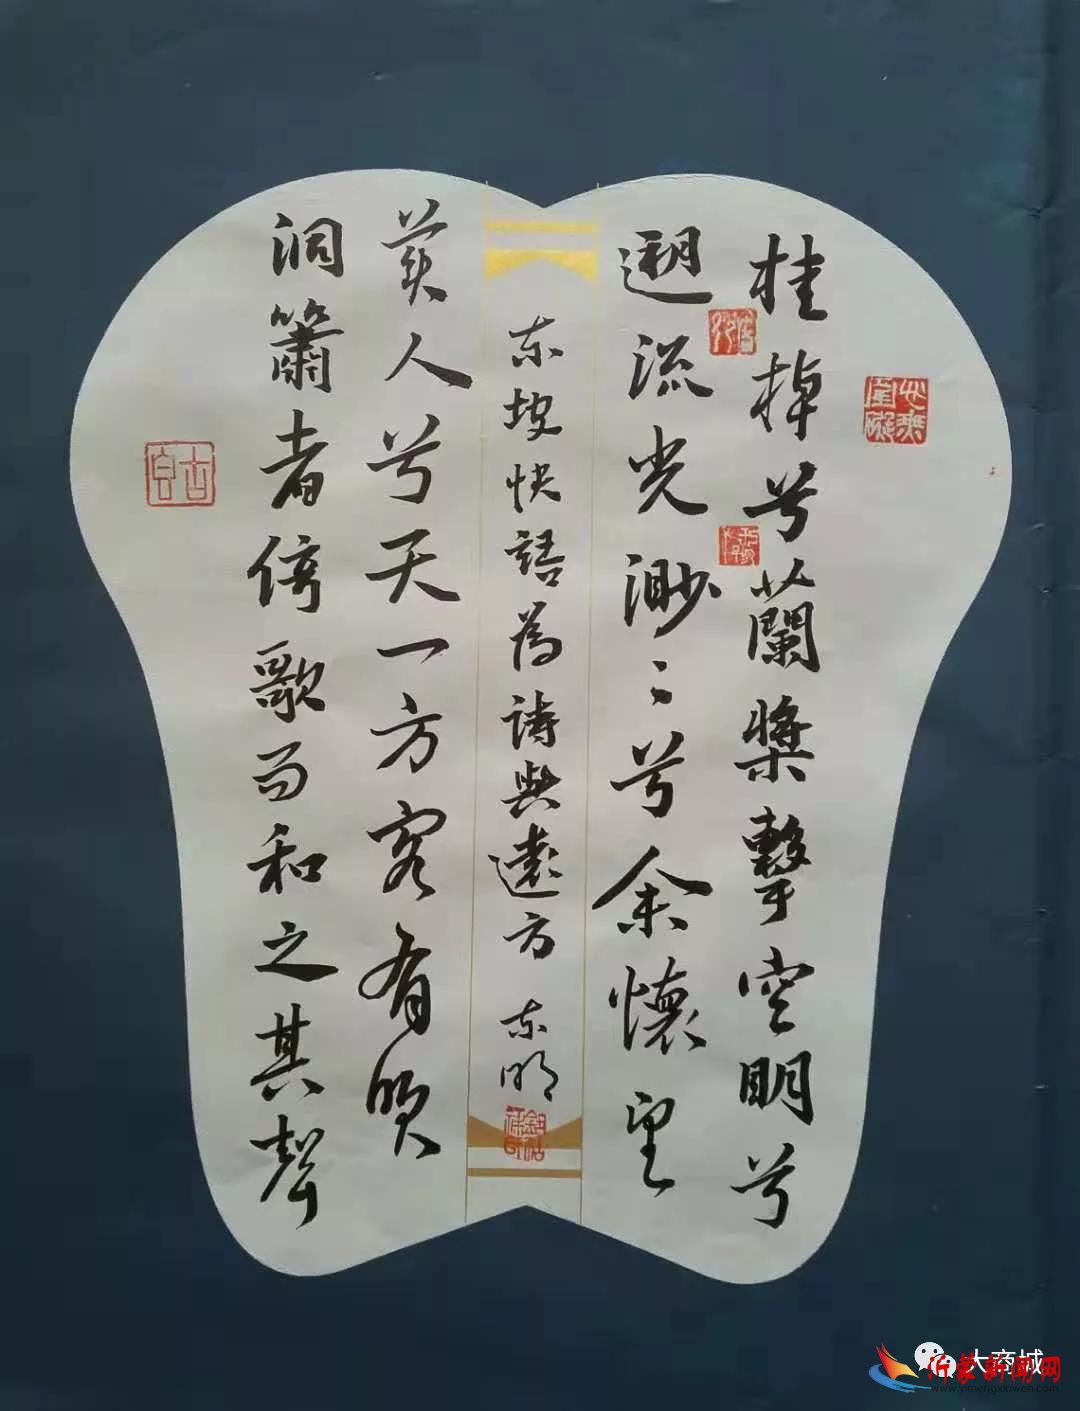 桂棹兮蘭槳擊空明兮
遡流光渺〻兮余懷望
東坡快語為詩與遠方 東明
美人兮天一方客有吹
洞簫者倚歌而和之其聲
大商城
沂蒙新闻网
www.yimengxinwen.com